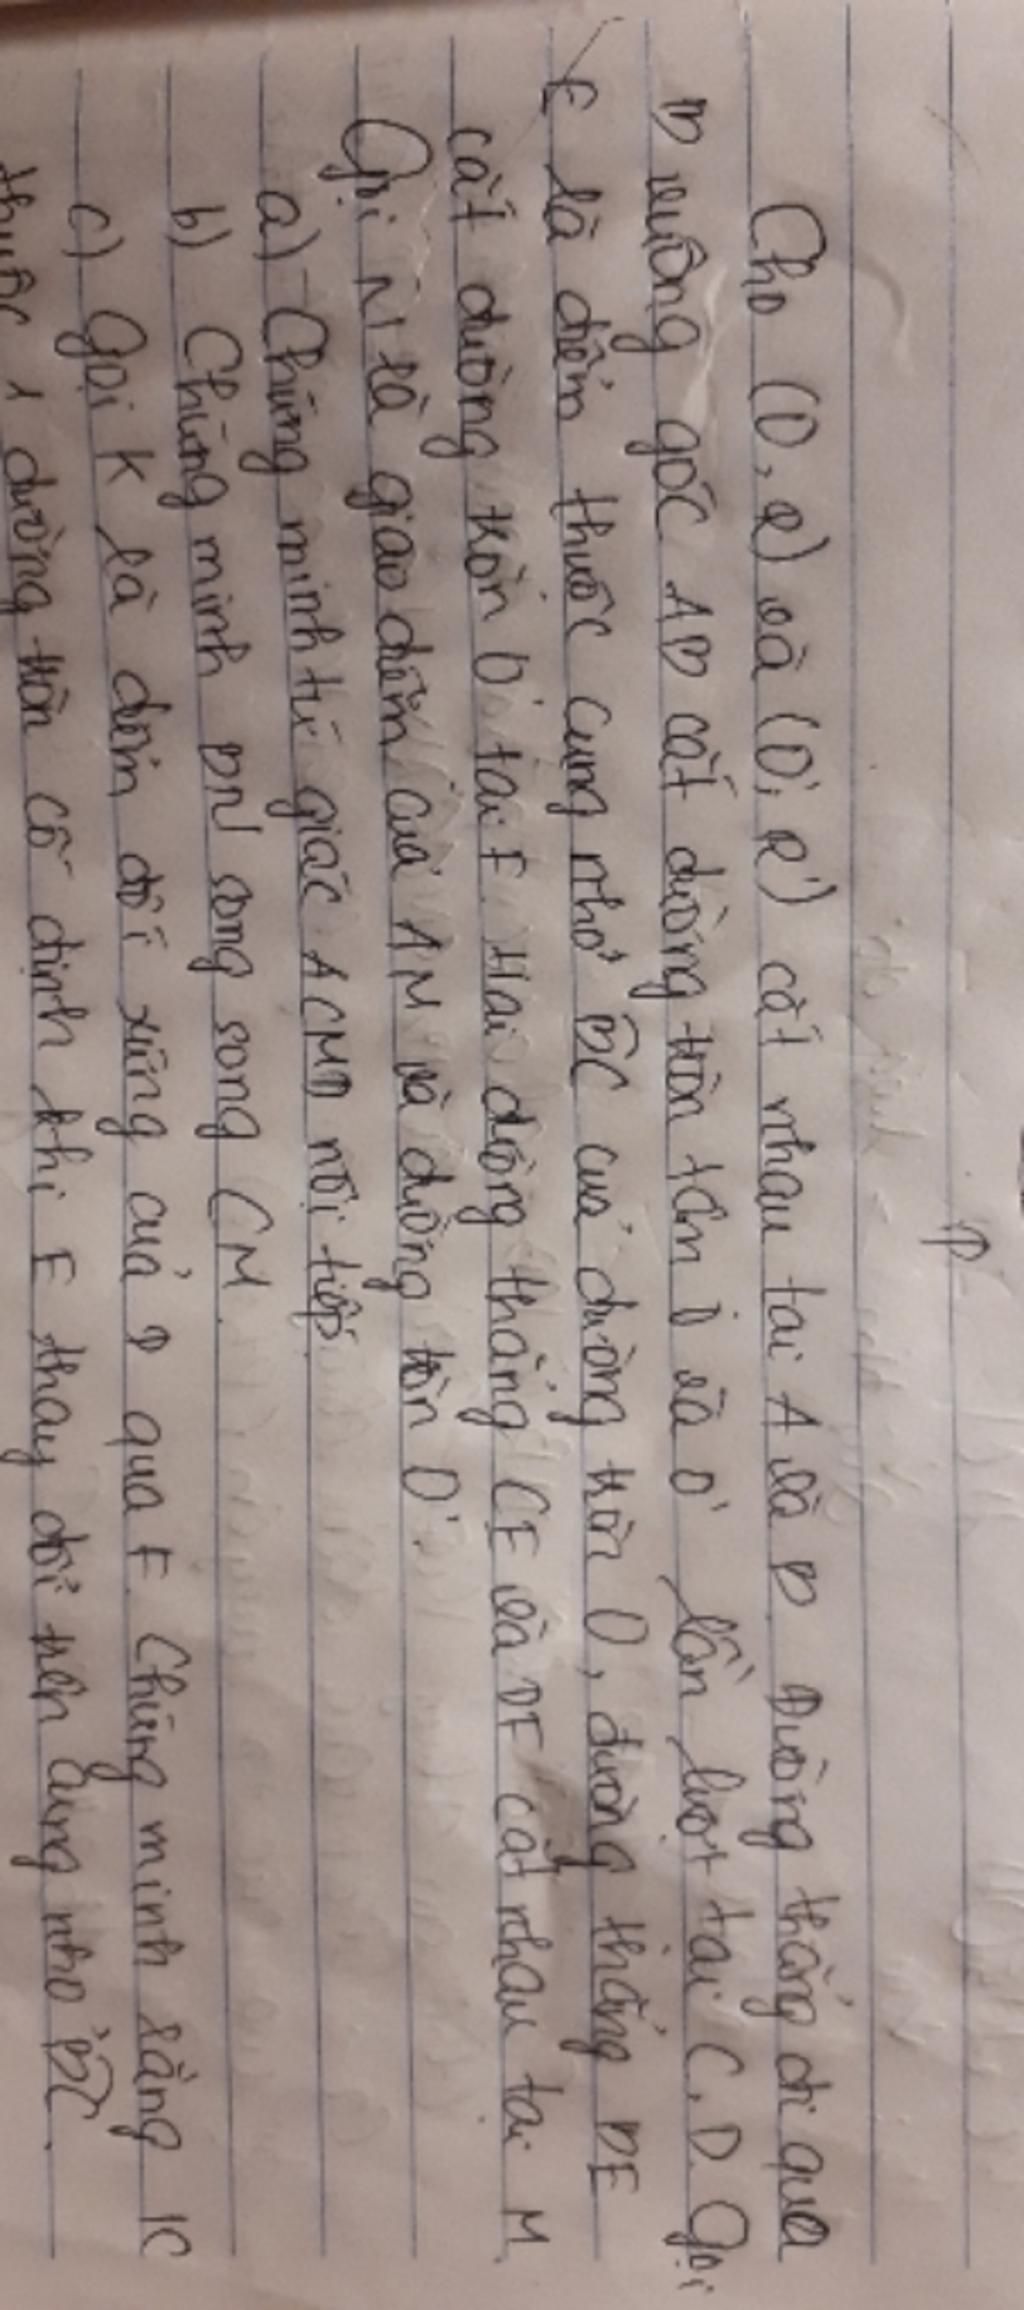 Cho (O, R) và (O', R') cắt nhau tại A và B. Đường thẳng đi qua
B vuông góc AB cắt đường tròn tâm O và O' lần lượt tại C, D. Gọi
E là điểm thuộc cung nhỏ BC của đường tròn O, đường thẳng BE
cắt đường tròn O' tại F. Hai đường thẳng CE và DF cắt nhau tại M
Gọi N là giao điểm của AM và đường tròn O'.
a) Chứng minh tứ giác ACMD nội tiếp
b) Chứng minh DN song song CM.
c) Gọi K là điểm đối xứng của D qua F. Chứng minh rằng K
thuộc 1 đường tròn cố định khi E thay đổi trên cung nhỏ BC.